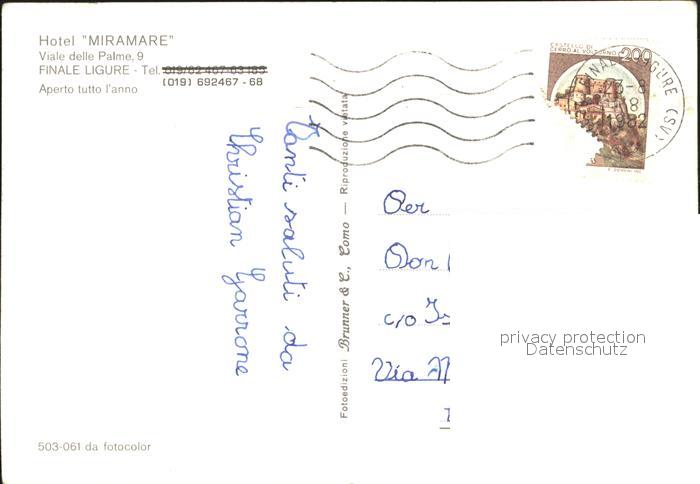 Hotel "MIRAMARE"
Viale delle Palme, 9
FINALE LIGURE - Tel. 019/82 467-63 183
(019) 692467 - 68
Aperto tutto l'anno
CASTELLO DI
CERRO AL VOLTURNO
200
FINALE LIGURE (SV)
23-8
18
1982
Tanti saluti da
Christian Garrone
Fotoedizioni Brunner & C., Como — Riproduzione vietata
Per
Don
c/o
Via
privacy protection
Datenschutz
503-061 da fotocolor